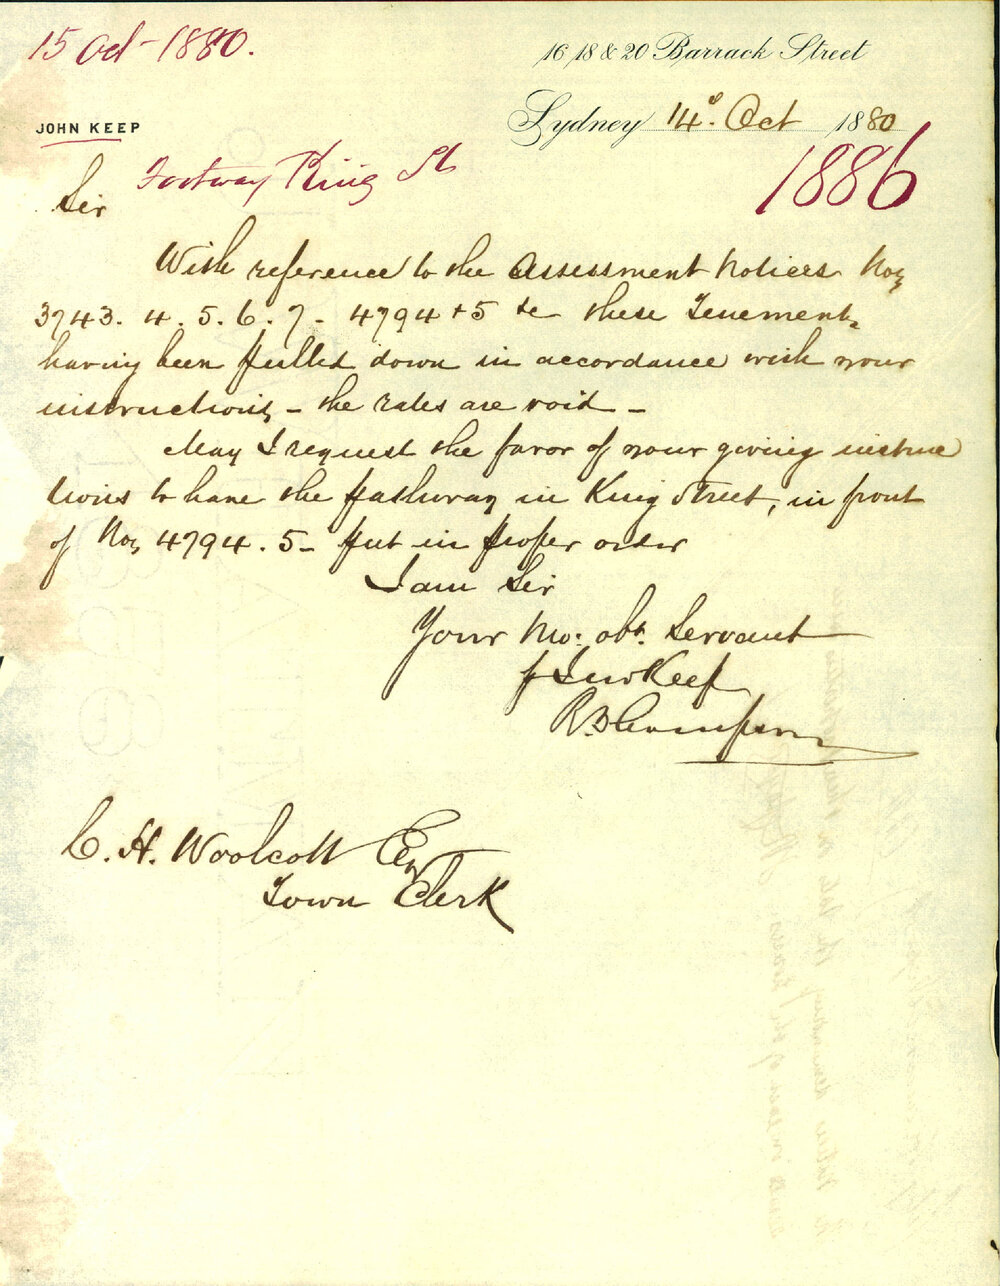 15 Oct - 1880.
16 18 & 20 Barrack Street
JOHN KEEP
Sydney 14th Oct 1880
Footway King St
1886
Sir
With reference to the Assessment Notices Nos
3743. 4. 5. 6. 7 - 4794 + 5 &c these Tenements
having been pulled down in accordance with your
instructions - the rates are void -
May I request the favor of your giving instruc
tions to have the pathway in King Street, in front
of Nos 4794. 5 - put in proper order
I am Sir
Your Mo: obt. Servant
p Jno Keep
C. H. Woolcott Esq
Town Clerk